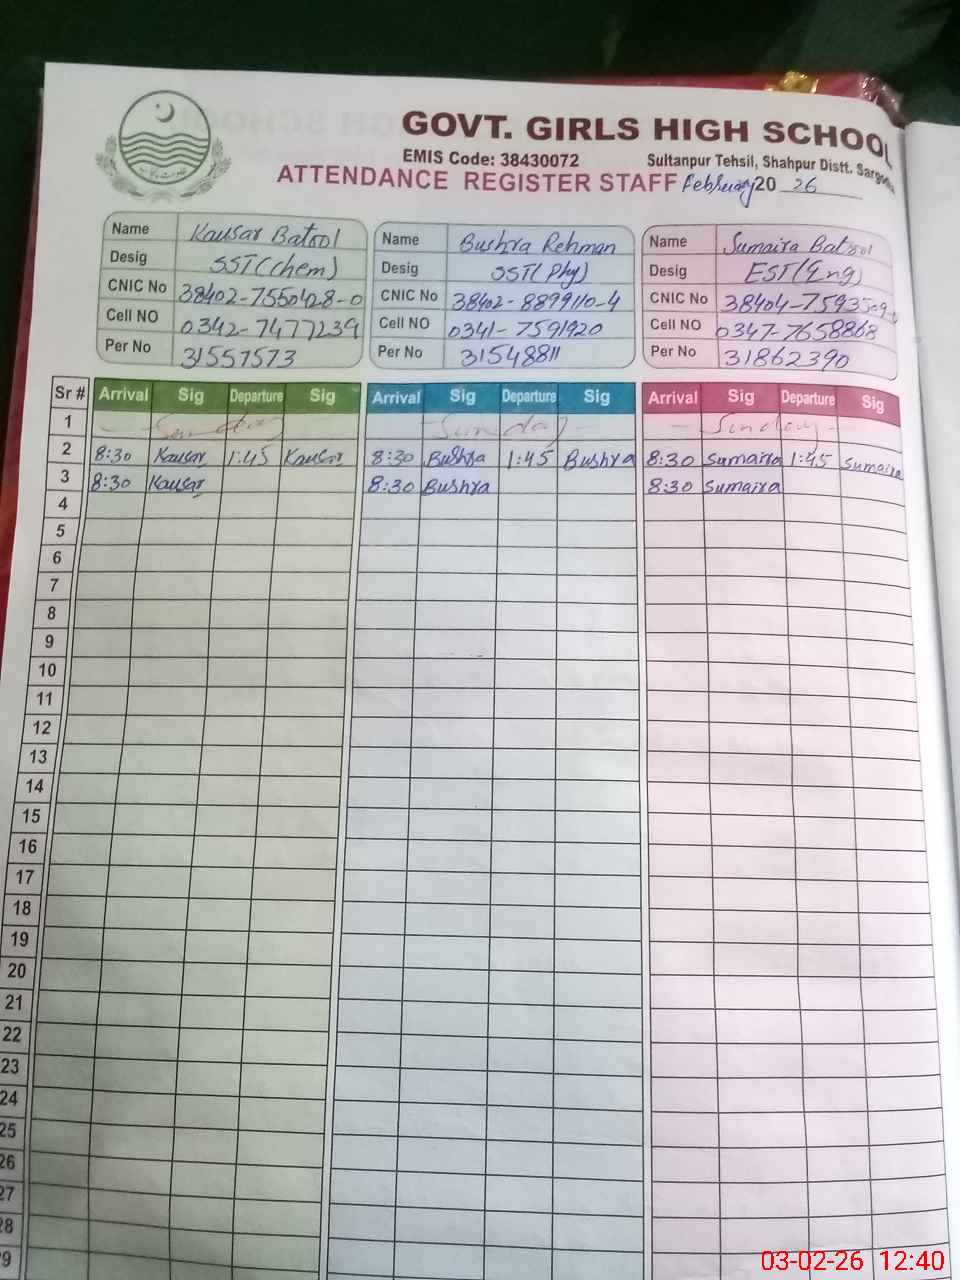 GOVT. GIRLS HIGH SCHOOL
EMIS Code: 38430072 Sultanpur Tehsil, Shahpur Distt. Sargodha
ATTENDANCE REGISTER STAFF February 20 26
Name Kausar Batool Name Bushra Rehman Name Sumaira Batool
Desig SST(Chem) Desig SST(Phy) Desig EST(Eng)
CNIC No 38402-7550428-0 CNIC No 38402-8899110-4 CNIC No 38404-7593509-0
Cell NO 0342-7477239 Cell NO 0341-7591920 Cell NO 0347-7658868
Per No 31557573 Per No 31548811 Per No 31862390
Sr # Arrival Sig Departure Sig Arrival Sig Departure Sig Arrival Sig Departure Sig
1 Sunday Sunday Sunday
2 8:30 Kausar 1:45 Kausar 8:30 Bushra 1:45 Bushra 8:30 Sumaira 1:45 Sumaira
3 8:30 Kausar 8:30 Bushra 8:30 Sumaira
4
5
6
7
8
9
10
11
12
13
14
15
16
17
18
19
20
21
22
23
24
25
26
27
28
29
03-02-26 12:40